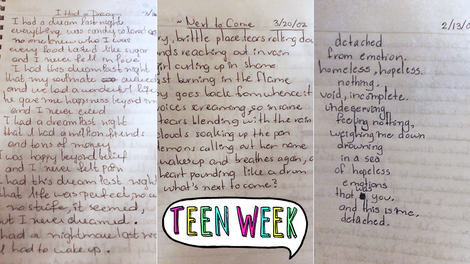 I Had a Dream
I had a dream last night
everything was candy colored
no one knew who I was
every food tasted like sugar
and I never fell in love
I had this dream last night
that my soulmate
and we had a wonderful life
he gave me happiness beyond
and I never cried
I had a dream last night
that I had a million friends
and tons of money
I was happy beyond belief
and I never felt pain
had this dream last night
that life was perfect
no strife, it seemed,
but I never dreamed.
had a nightmare last
I had to wake up.
~ Next to Come 3/20/02
y, brittle place, tears rolling do
nds reaching out in vain
girl curling up in shame
st burning in the flame
goes back from whence it
oices screaming, so insane
tears blending with the rain
clouds soaking up the pain
emons calling out her name
wakes up and breathes again,
heart pounding like a drum
what's next to come?
TEEN WEEK
2/13/0
detached
from emotion.
homeless, hopeless.
nothing.
void, incomplete.
undeserving,
feeling nothing,
weighing me down
drowning
in a sea
of hopeless
emotions
that was you,
and this is me,
detached.